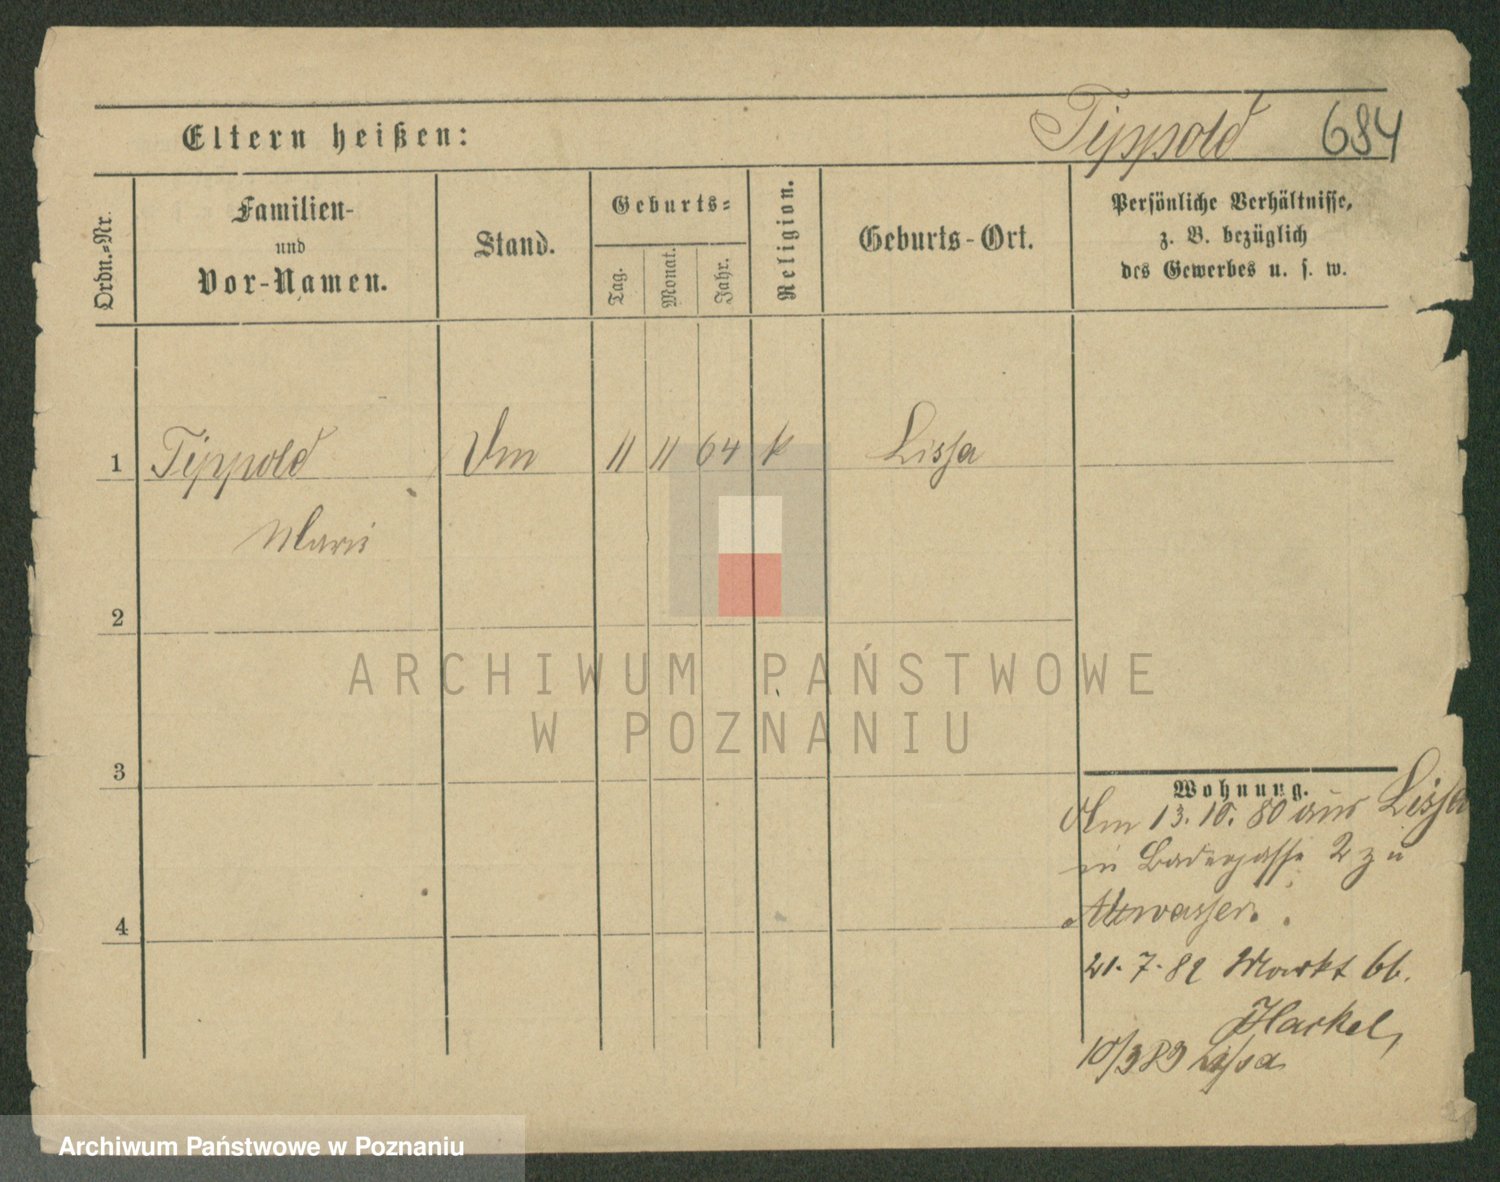 Eltern heißen:
Tippold 684
Ordn.-Nr.
Familien-
und
Vor-Namen.
Stand.
Geburts-
Tag.
Monat.
Jahr.
Religion.
Geburts-Ort.
Persönliche Verhältnisse,
z. B. bezüglich
des Gewerbes u. s. w.
1 Tippold 11 11 64 k Lissa
Marie
2
3
4
Wohnung.
13. 10. 80 aus Lissa
in Badegasse 2 zu
21. 7. 82 Markt 66.
Hackel,
10/3 83 Lissa
ARCHIWUM PAŃSTWOWE
W POZNANIU
Archiwum Państwowe w Poznaniu